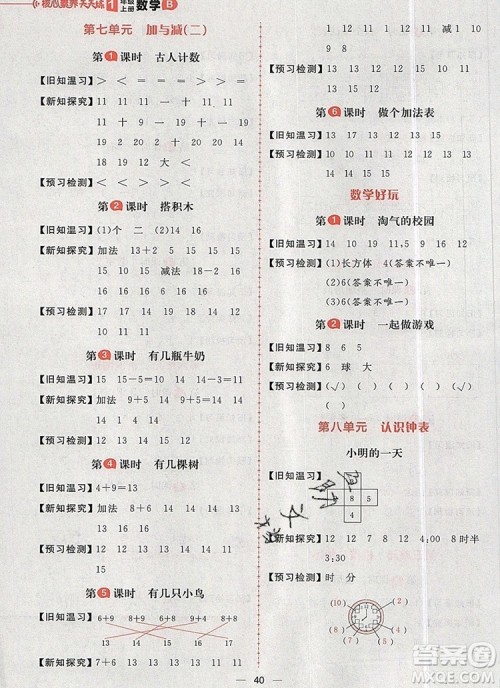 核心素养天天练 1年级上册 数学 B
第七单元 加与减(二)
第1课时 古人计数
【旧知温习】> < = < = < = >
【新知探究】11 11 一 十 11 11
十 11 11 十 19 11
20 十 20 二 十 20 14
18 19 12 大 <
【预习检测】> < < <
第2课时 搭积木
【旧知温习】(1)个 二 (2)14 16
【新知探究】加法 13+2 15 15 15
15 10 15 减法 15-5
10 10
【预习检测】17 18 19 14 13 12
第3课时 有几瓶牛奶
【旧知温习】15 15-5=10 10+5=15
【新知探究】加法 9+5=14 14 14 14
【预习检测】13 18 11 17 12 16
第4课时 有几棵树
【旧知温习】4+9=13
【新知探究】加法 8+6=14 14 14 14
13 13
【预习检测】14 12 15 11 16
第5课时 有几只小鸟
【旧知温习】6+9 8+9 8+8 9+4 6+8
13 14 15 16 17
【新知探究】12 12 11 14 16 11
11 15 13 11
【预习检测】13 12 12 14 15 13 12
16 11
第6课时 做个加法表
【旧知温习】12 15 14 12 17 13
【新知探究】9 8 9 7 8 9
【预习检测】10 12 10 18 16 12
数学好玩
第1课时 淘气的校园
【预习检测】(1)长方体 4(答案不唯一)
(2)6 4(答案不唯一)
(3)6(答案不唯一)
第2课时 一起做游戏
【旧知温习】8 6 5
【新知探究】6 球 大
【预习检测】(√)( )( )(√)
第八单元 认识钟表
小明的一天
【旧知温习】
8 5
4
【新知探究】12 12 7 12 4 4:00 8时半
3:30
【预习检测】时 分
(1) (2) (4) (6) (7) (10)
40
答案圈